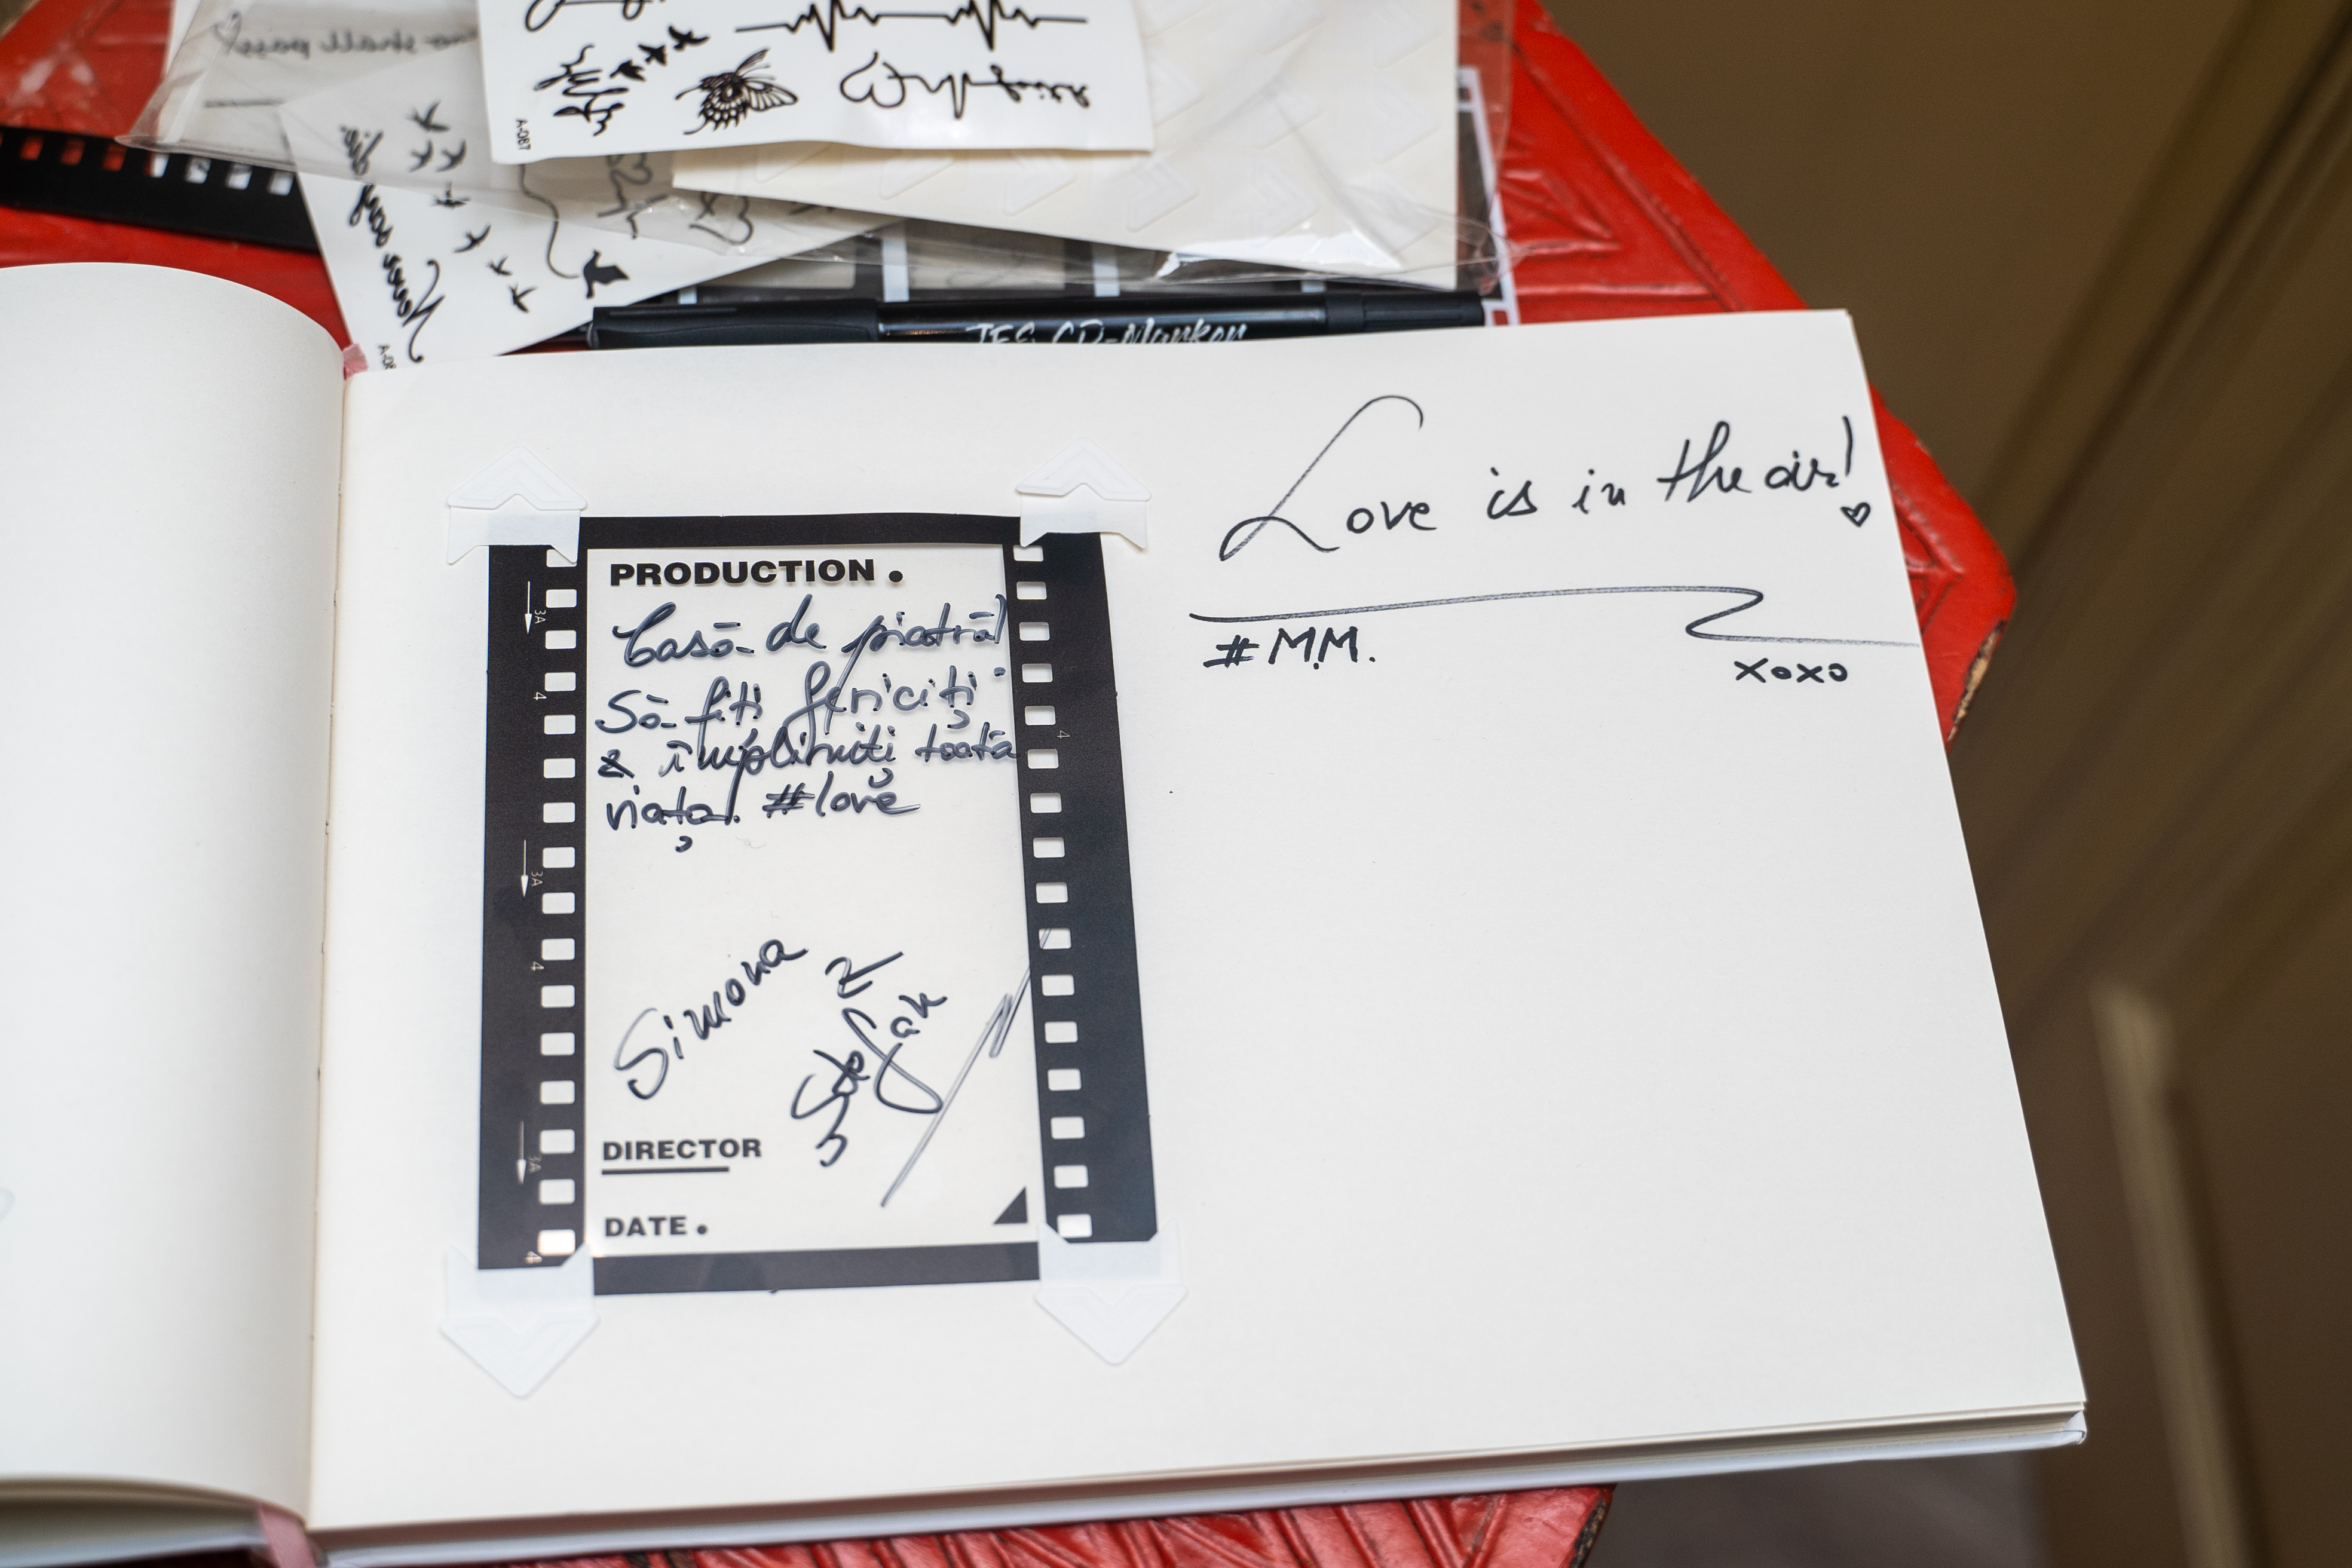 no shall pass
A-087
Yours
JES CD-Marker
Love is in the air!
#M.M.
xoxo
PRODUCTION.
Casă de piatră!
Să fiți fericiți
& împliniți toată
viața! #love
Simona
&
Stefan
DIRECTOR
DATE.
3A
4
3A
4
3A
4
4